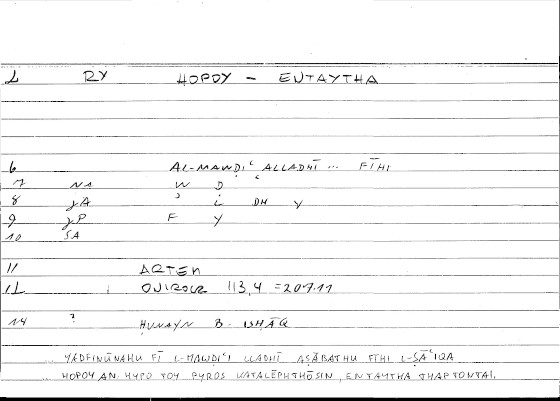 1 RY HOPOY - ENTAYTHA
6 AL-MAWḌIʿ ALLADHĪ ... FĪHI
7 NA W Ḍ ʿ
8 jA ʾ L DH Y
9 jP F Y
10 SA
11 ARTEM
12 ONIROCR 113,4 = 207.11
14 ? ḤUNAYN B. ISḤĀQ
... YADFINŪNAHU FĪ L-MAWḌIʿI LLADHĪ AṢĀBATHU FĪHI L-ṢĀʿIQA
HOPOY AN HYPO TOY PYROS KATALĒPHTHŌSIN, ENTAYTHA THAPTONTAI.